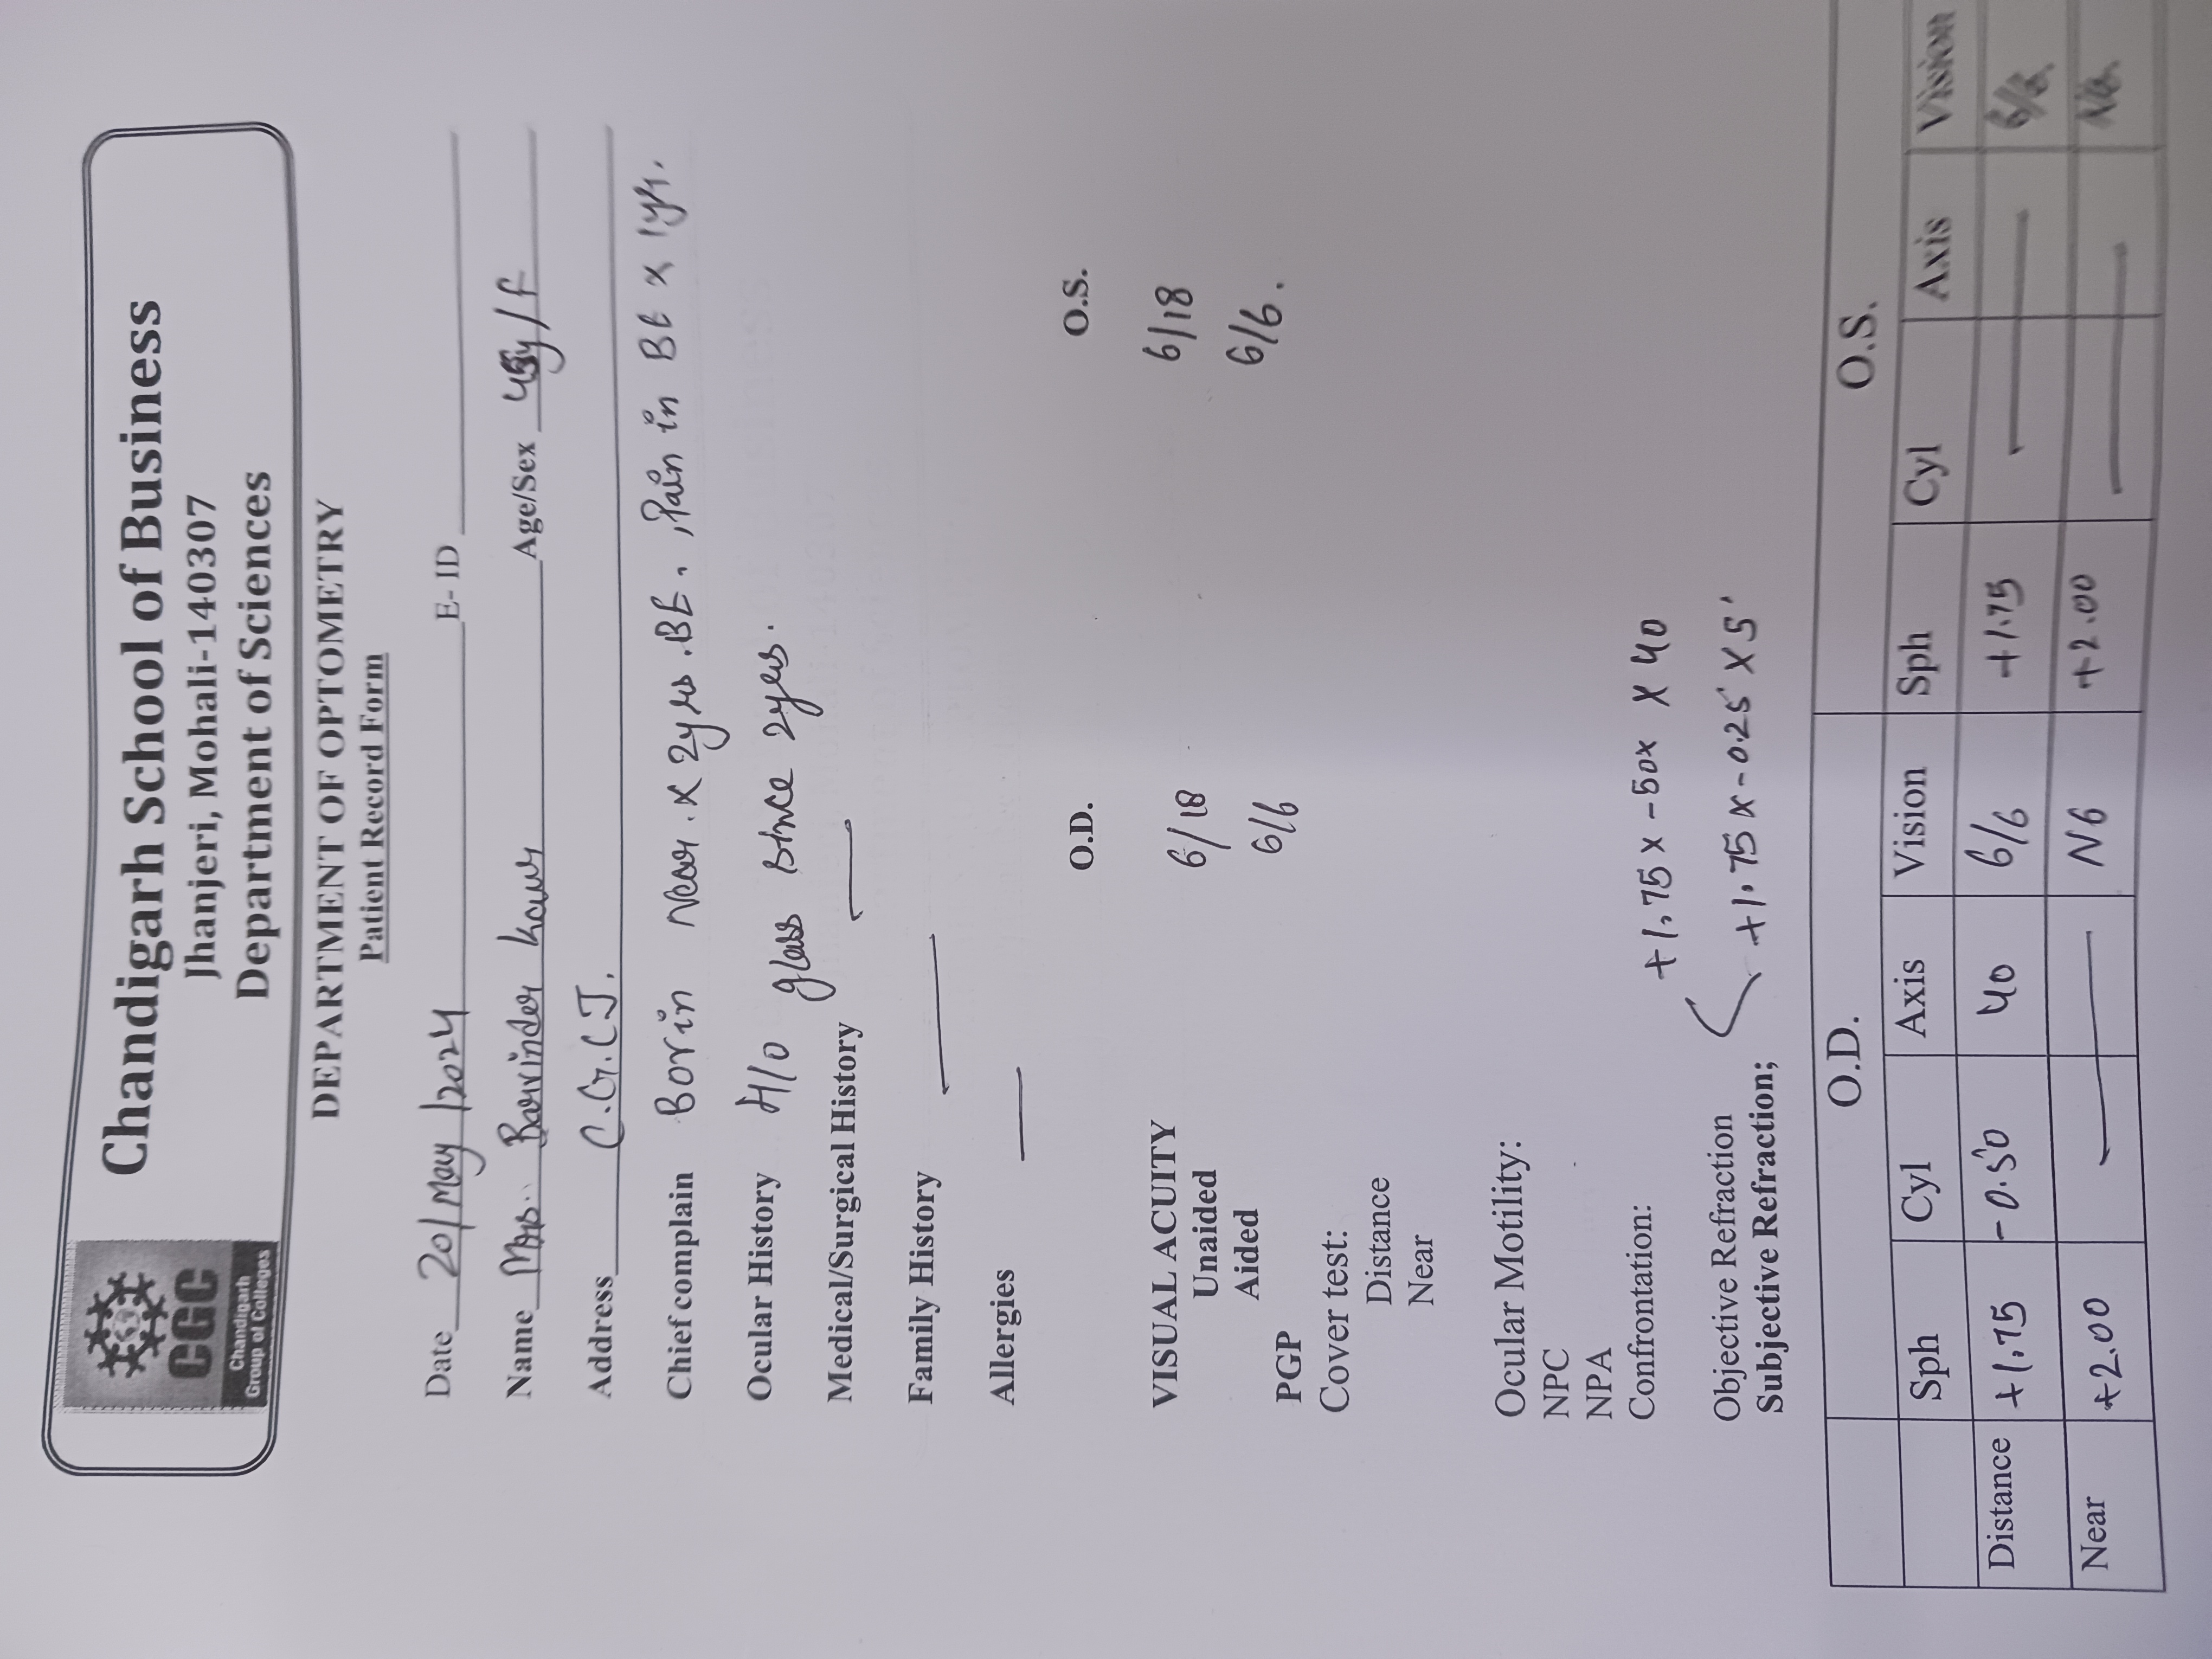 CGC
Chandigarh
Group of Colleges
Chandigarh School of Business
Jhanjeri, Mohali-140307
Department of Sciences
DEPARTMENT OF OPTOMETRY
Patient Record Form
Date 20/May/2024 E- ID
Name Mrs. Barvinder Kaur Age/Sex /F
Address C.G.C J.
Chief complain BOV in Near. x 2yrs. BE. , Pain in BE x 1yr.
Ocular History H/O glass since 2yrs.
Medical/Surgical History —
Family History —
Allergies —
O.D. O.S.
VISUAL ACUITY
Unaided 6/18 6/18
Aided 6/6 6/6.
PGP
Cover test:
Distance
Near
Ocular Motility:
NPC
NPA
Confrontation:
+1.75 x -50x X 40
Objective Refraction
+1.75 x -0.25 X 5'
Subjective Refraction;
O.D. O.S.
Sph Cyl Axis Vision Sph Cyl Axis Vision
Distance +1.75 -0.50 40 6/6 +1.75 — 6/6
Near +2.00 — N6 +2.00 — N6